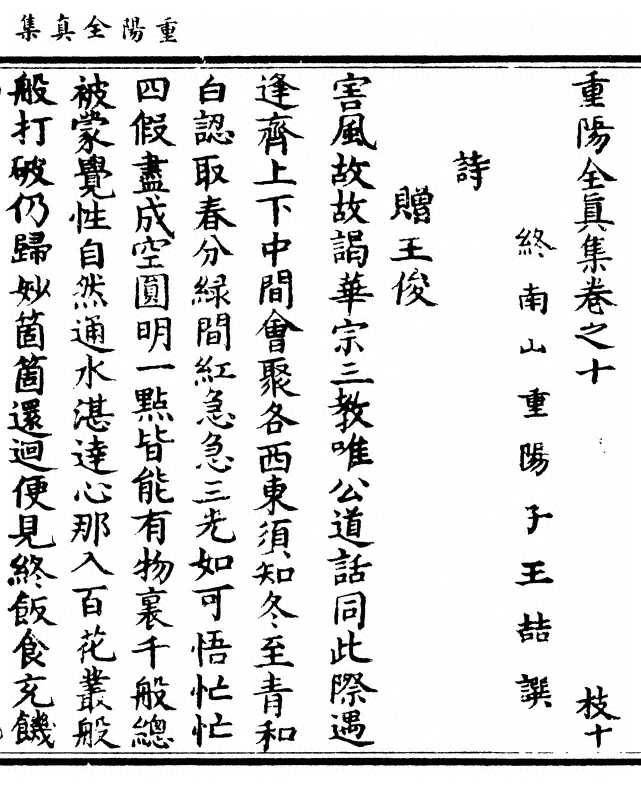 重陽全真集
重陽全眞集卷之十 枝十
終南山重陽子王嚞撰
詩
贈王俊
害風故故謁華宗三教唯公道話同此際遇
逢齊上下中間會聚各西東須知冬至青和
白認取春分綠間紅急急三光如可悟忙忙
四假盡成空圓明一點皆能有物裏千般總
被蒙覺性自然通水湛達心那入百花叢般
般打破仍歸妙箇箇還迴便見終飯食充饑